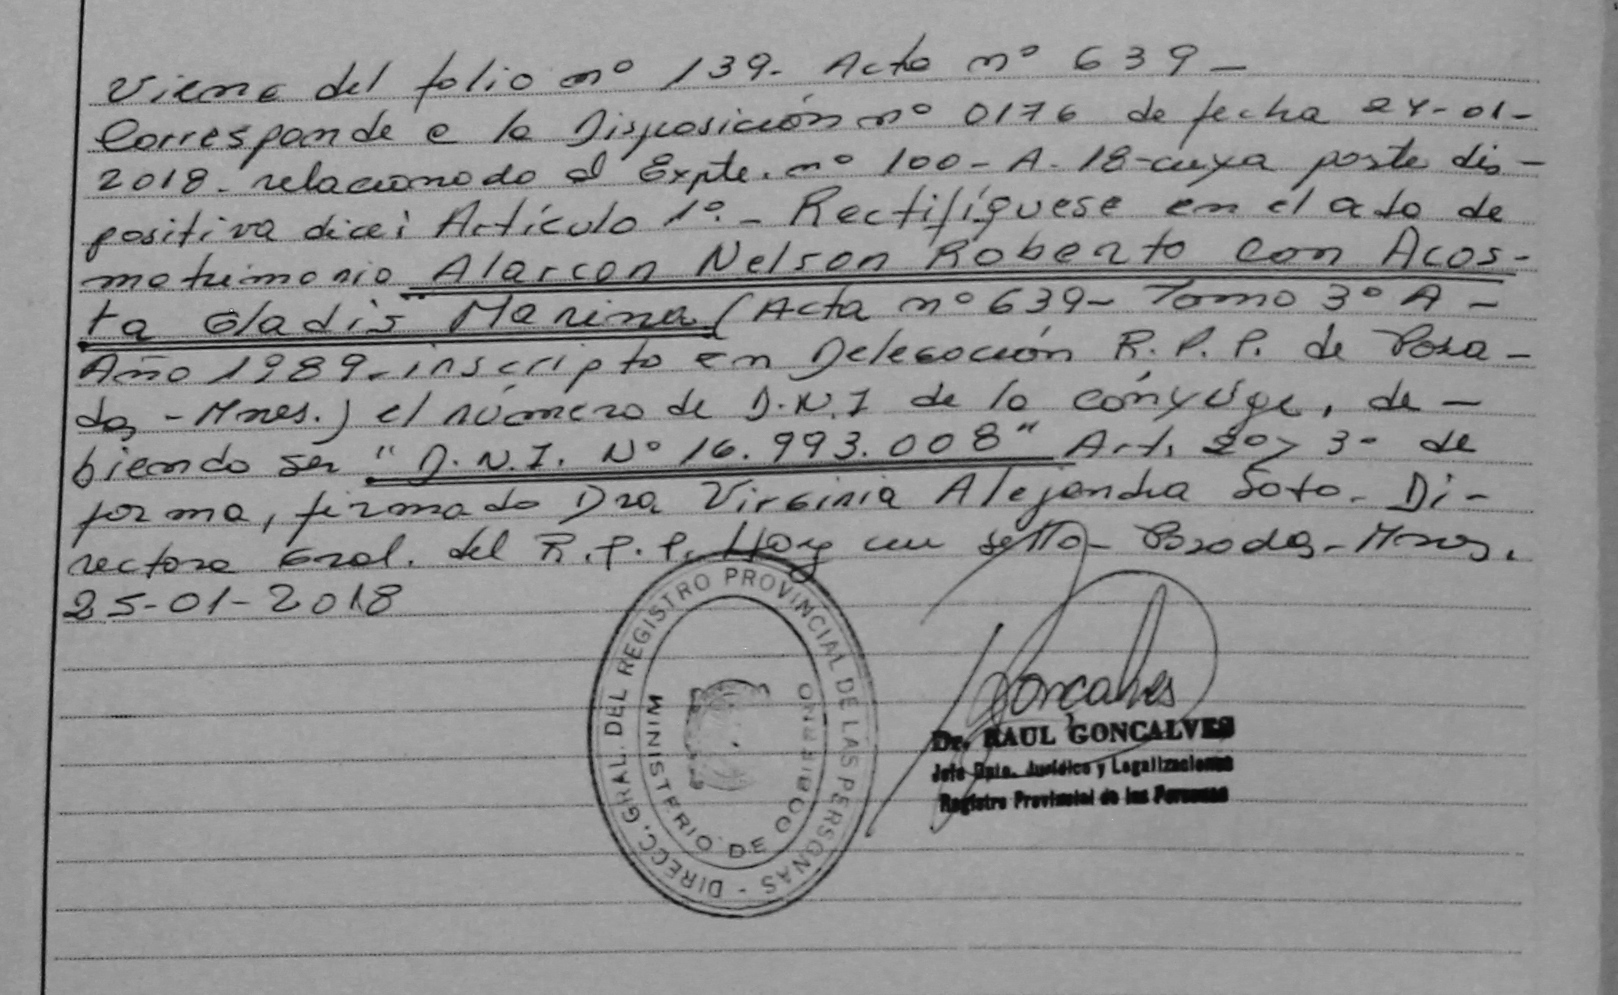 Viene del folio nº 139- Acta nº 639-
Corresponde a la Disposición nº 0176 de fecha 24-01-
2018- relacionado al Expte. nº 100-A-18-cuya parte dis-
positiva dice: Artículo 1º.- Rectifíquese en el acta de
matrimonio Alarcon Nelson Roberto con Acos-
ta Gladis Marina (Acta nº 639- Tomo 3º A-
Año 1989-inscripto en Delegación R.P.P. de Posa-
das -Mnes.) el número de D.N.I de la cónyuge, de-
biendo ser "D.N.I. Nº 16.993.008" Art. 2º y 3º de
forma, firmado Dra Virginia Alejandra Soto. Di-
rectora Gral. del R.P.P. Hay un sello- Posadas-Mnes.
25-01-2018
DIRECC. GRAL. DEL REGISTRO PROVINCIAL DE LAS PERSONAS -
MINISTERIO DE GOBIERNO
Goncalves
Dr. RAUL GONCALVES
Jefe Dpto. Jurídico y Legalizaciones
Registro Provincial de las Personas